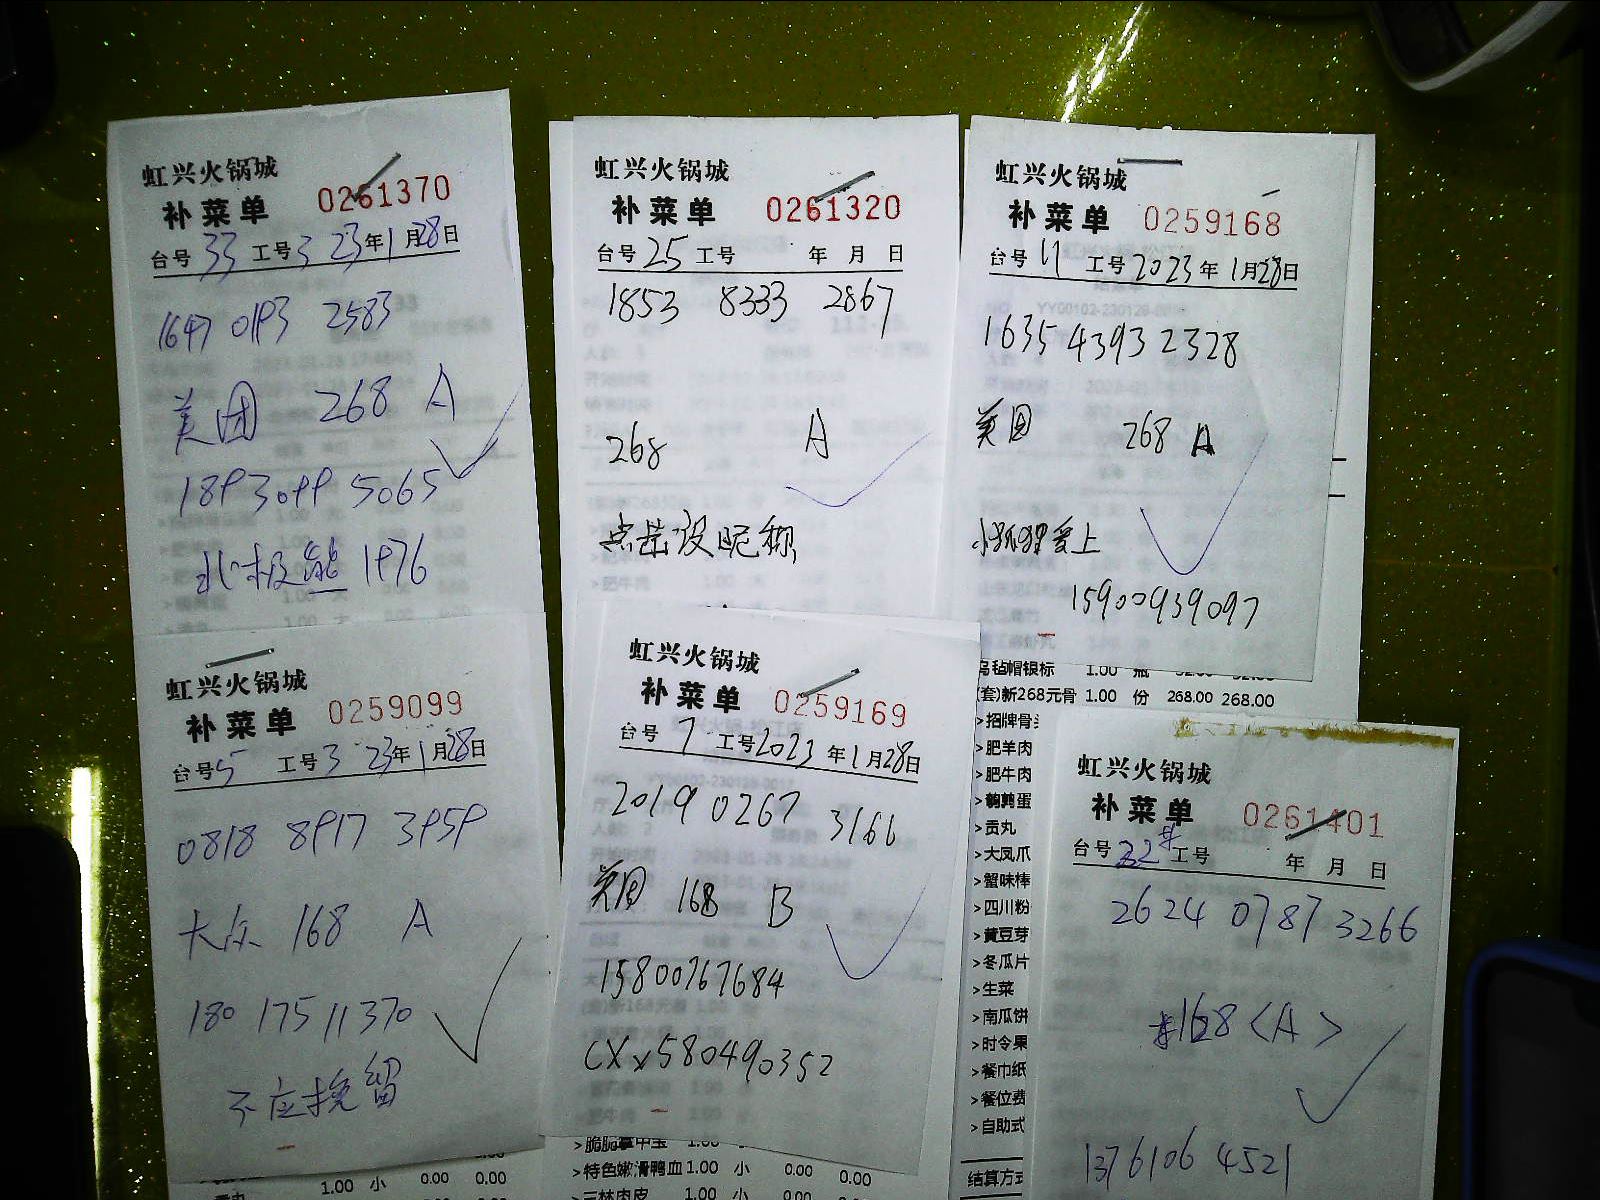 虹兴火锅城
补菜单 0261370
台号 33 工号 3 23年1月28日
1647 0193 2583
美团 268 A
189 3099 5065
北极熊 1976
虹兴火锅城
补菜单 0261320
台号 25 工号 年 月 日
1853 8333 2867
268 A
点击设昵称
虹兴火锅城
补菜单 0259168
台号 11 工号 2023年1月28日
1635 4393 2328
美团 268 A
小狐狸爱上
15900939097
乌毡帽银标 1.00 瓶
(套)新268元骨 1.00 份 268.00 268.00
>招牌骨
>肥羊肉
>肥牛肉
>鹌鹑蛋
>贡丸
>大凤爪
>蟹味棒
>四川粉
>黄豆芽
>冬瓜片
>生菜
>南瓜饼
>时令果
>餐巾纸
>餐位费
>自助式
结算方式
虹兴火锅城
补菜单 0259099
台号 5 工号 3 23年1月28日
0818 8917 3959
大众 168 A
180 1751 1370
不应挽留
虹兴火锅城
补菜单 0259169
台号 7 工号 2023年1月28日
2019 0267 3166
美团 168 B
15800767684
CXx580490352
>脆脆掌中宝 1.00 小
>特色嫩滑鸭血 1.00 小 0.00 0.00
>三林肉皮 1.00 小 0.00 0.00
1.00 小 0.00 0.00
虹兴火锅城
补菜单 0261401
台号 22# 工号 年 月 日
2624 0787 3266
168<A>
1376106 4521